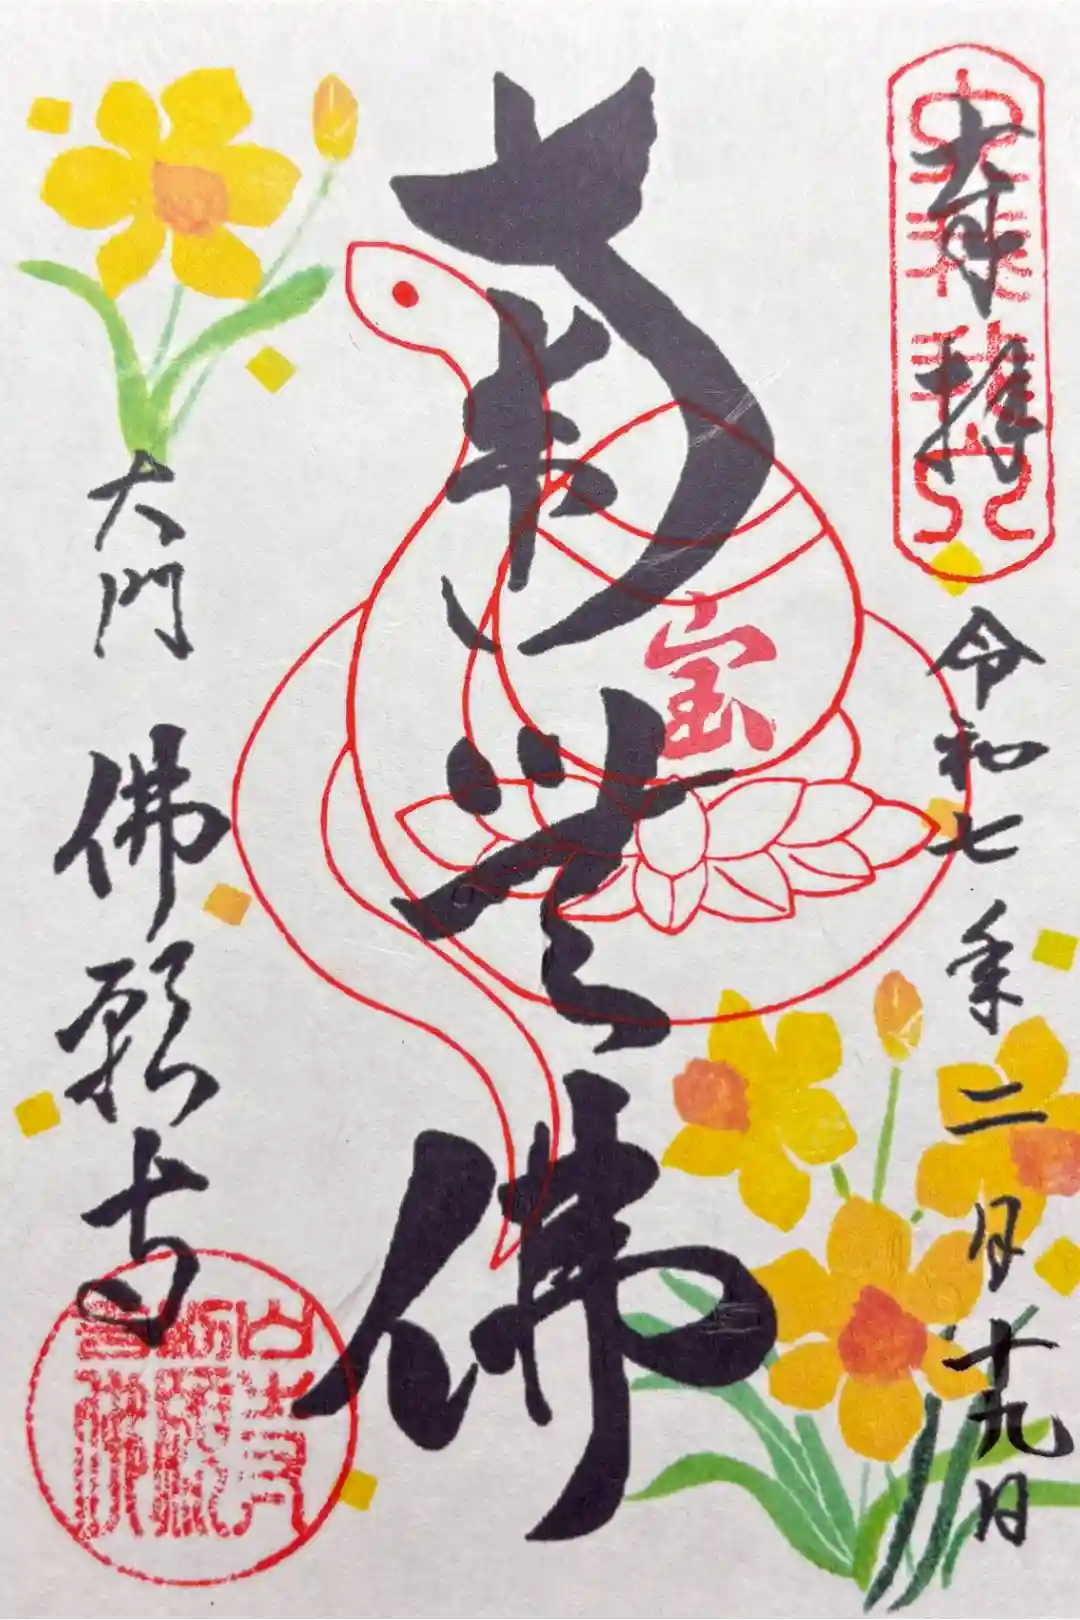 奉拝
令和七年二月十九日
南無佛
宝
大門 佛願寺